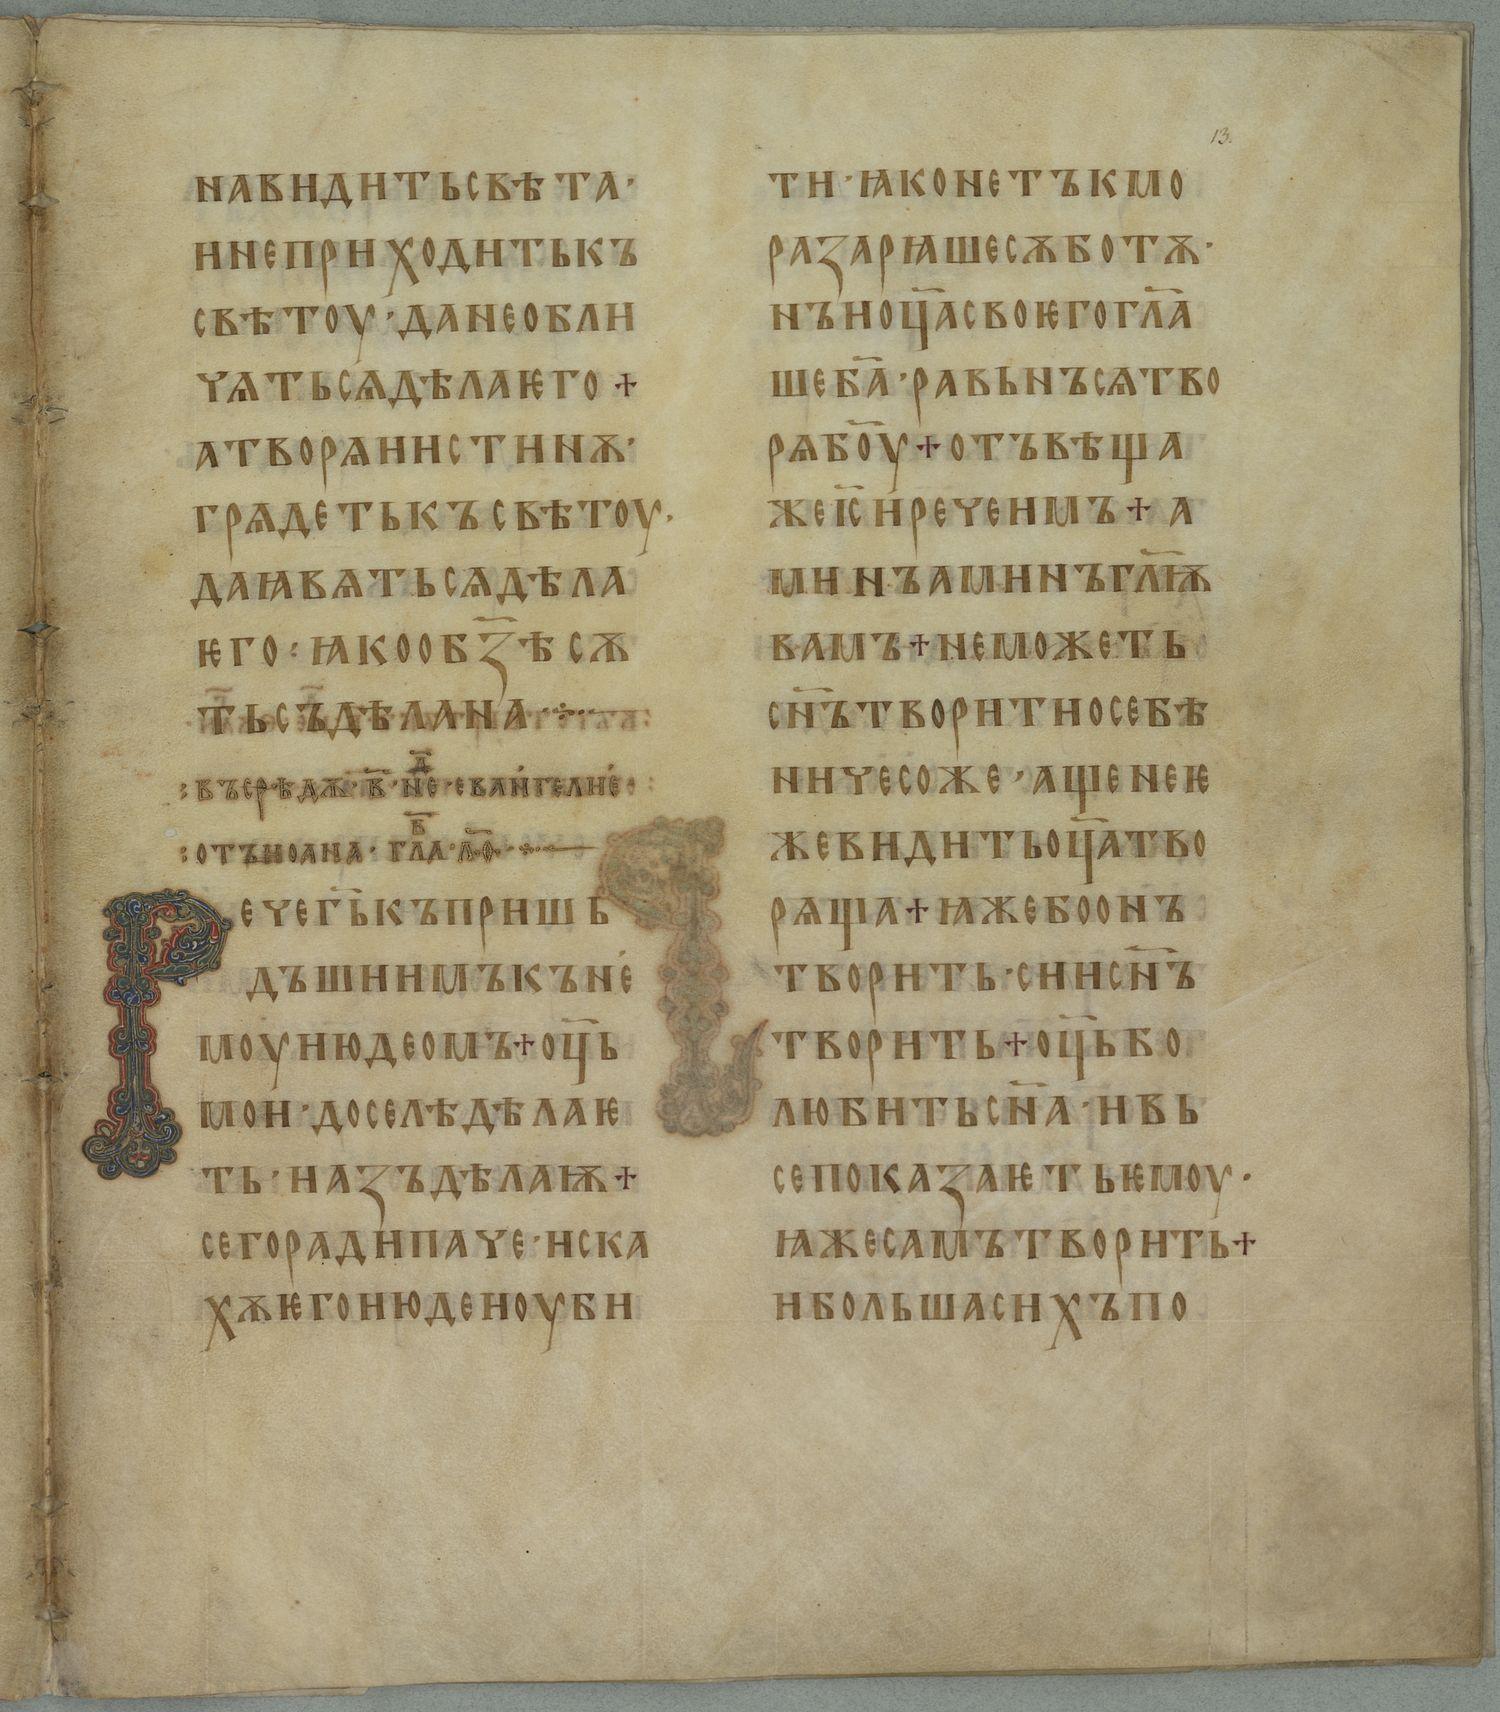 13.
навидить свѣта·
и не приходить къ
свѣтоу· да не обли
чѧть сѧ дѣла ѥго +
а творѧи истинѫ·
грѧдеть къ свѣтоу·
да ꙗвѧть сѧ дѣла
ѥго· ꙗко о б҃ꙁѣ сѫ
ть съд҃ѣлана
въ срѣдѫ· в҃· неⷣ· еваńгелиѥ
отъ иоана· глаⷡ· л҃ѳ·
Рече г҃ь къ пришь
дъшиимъ къ не
моу июдеомъ + оц҃ь
мои· доселѣ дѣлаѥ
ть· и аꙁъ дѣлаѭ +
сего ради паче· иска
хѫ ѥго июдеи оуби
ти· ꙗко не тъкмо
раꙁарꙗше сѫботѫ·
нъ и оц҃а своѥго гл҃а
ше б҃а· равьнъ сѧ тво
рѧ б҃оу + отъвѣща
же іс҃ и рече имъ + а
минъ аминъ гл҃ѭ
вамъ + не можеть
сн҃ъ творити о себѣ
ничесоже· аще не ѥ
же видить оц҃а тво
рѧща + ꙗже бо онъ
творить· си и сн҃ъ
творить + оц҃ь бо
любить сн҃а· и вь
се покаꙁаѥть ѥмоу·
ꙗже самъ творить +
и больша сихъ по